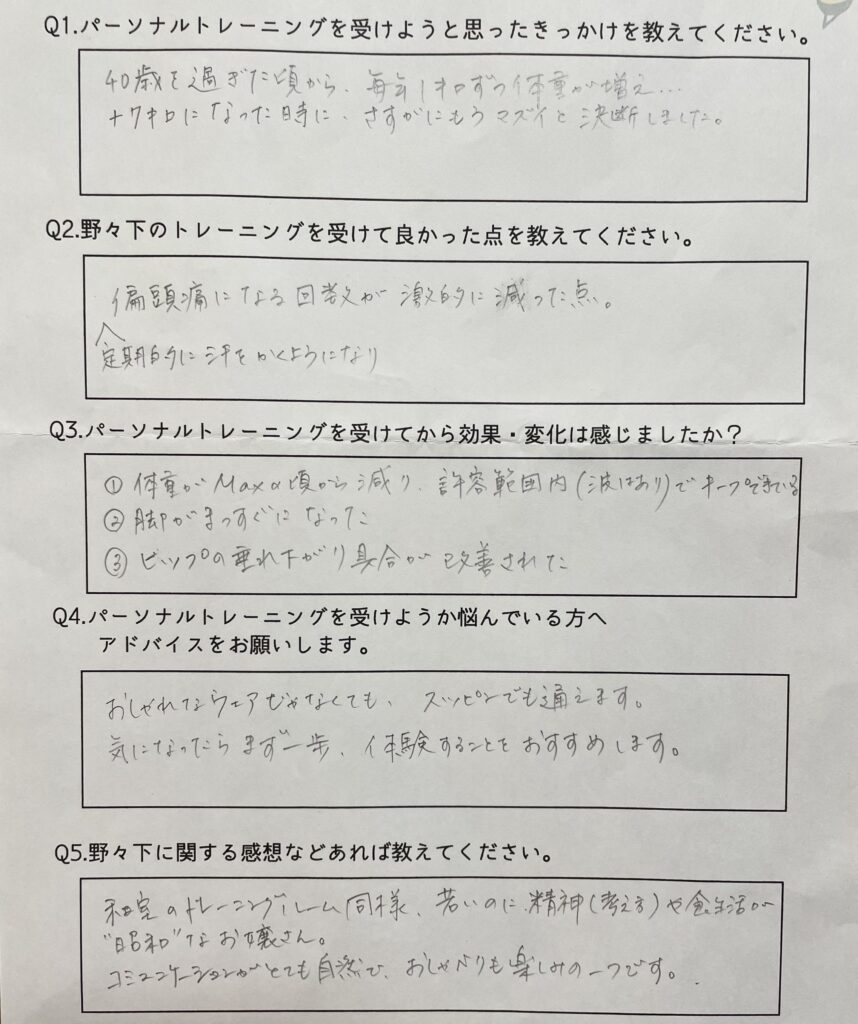 Q1.パーソナルトレーニングを受けようと思ったきっかけを教えてください。
40歳を過ぎた頃から、毎年1キロずつ体重が増え…
+7キロになった時に、さすがにもうマズイと決断しました。
Q2.野々下のトレーニングを受けて良かった点を教えてください。
偏頭痛になる回数が激的に減った点。
定期的に汗をかくようになり
Q3.パーソナルトレーニングを受けてから効果・変化は感じましたか？
① 体重がMaxの頃から減り、許容範囲内(波はあり)でキープできている
② 脚がまっすぐになった
③ ヒップの垂れ下がり具合が改善された
Q4.パーソナルトレーニングを受けようか悩んでいる方へ
アドバイスをお願いします。
おしゃれなウェアじゃなくても、スッピンでも通えます。
気になったらまず一歩、体験することをおすすめします。
Q5.野々下に関する感想などあれば教えてください。
和室のトレーニングルーム同様、若いのに精神(考え方)や食生活が
"昭和"なお嬢さん。
コミュニケーションがとても自然で、おしゃべりも楽しみの一つです。